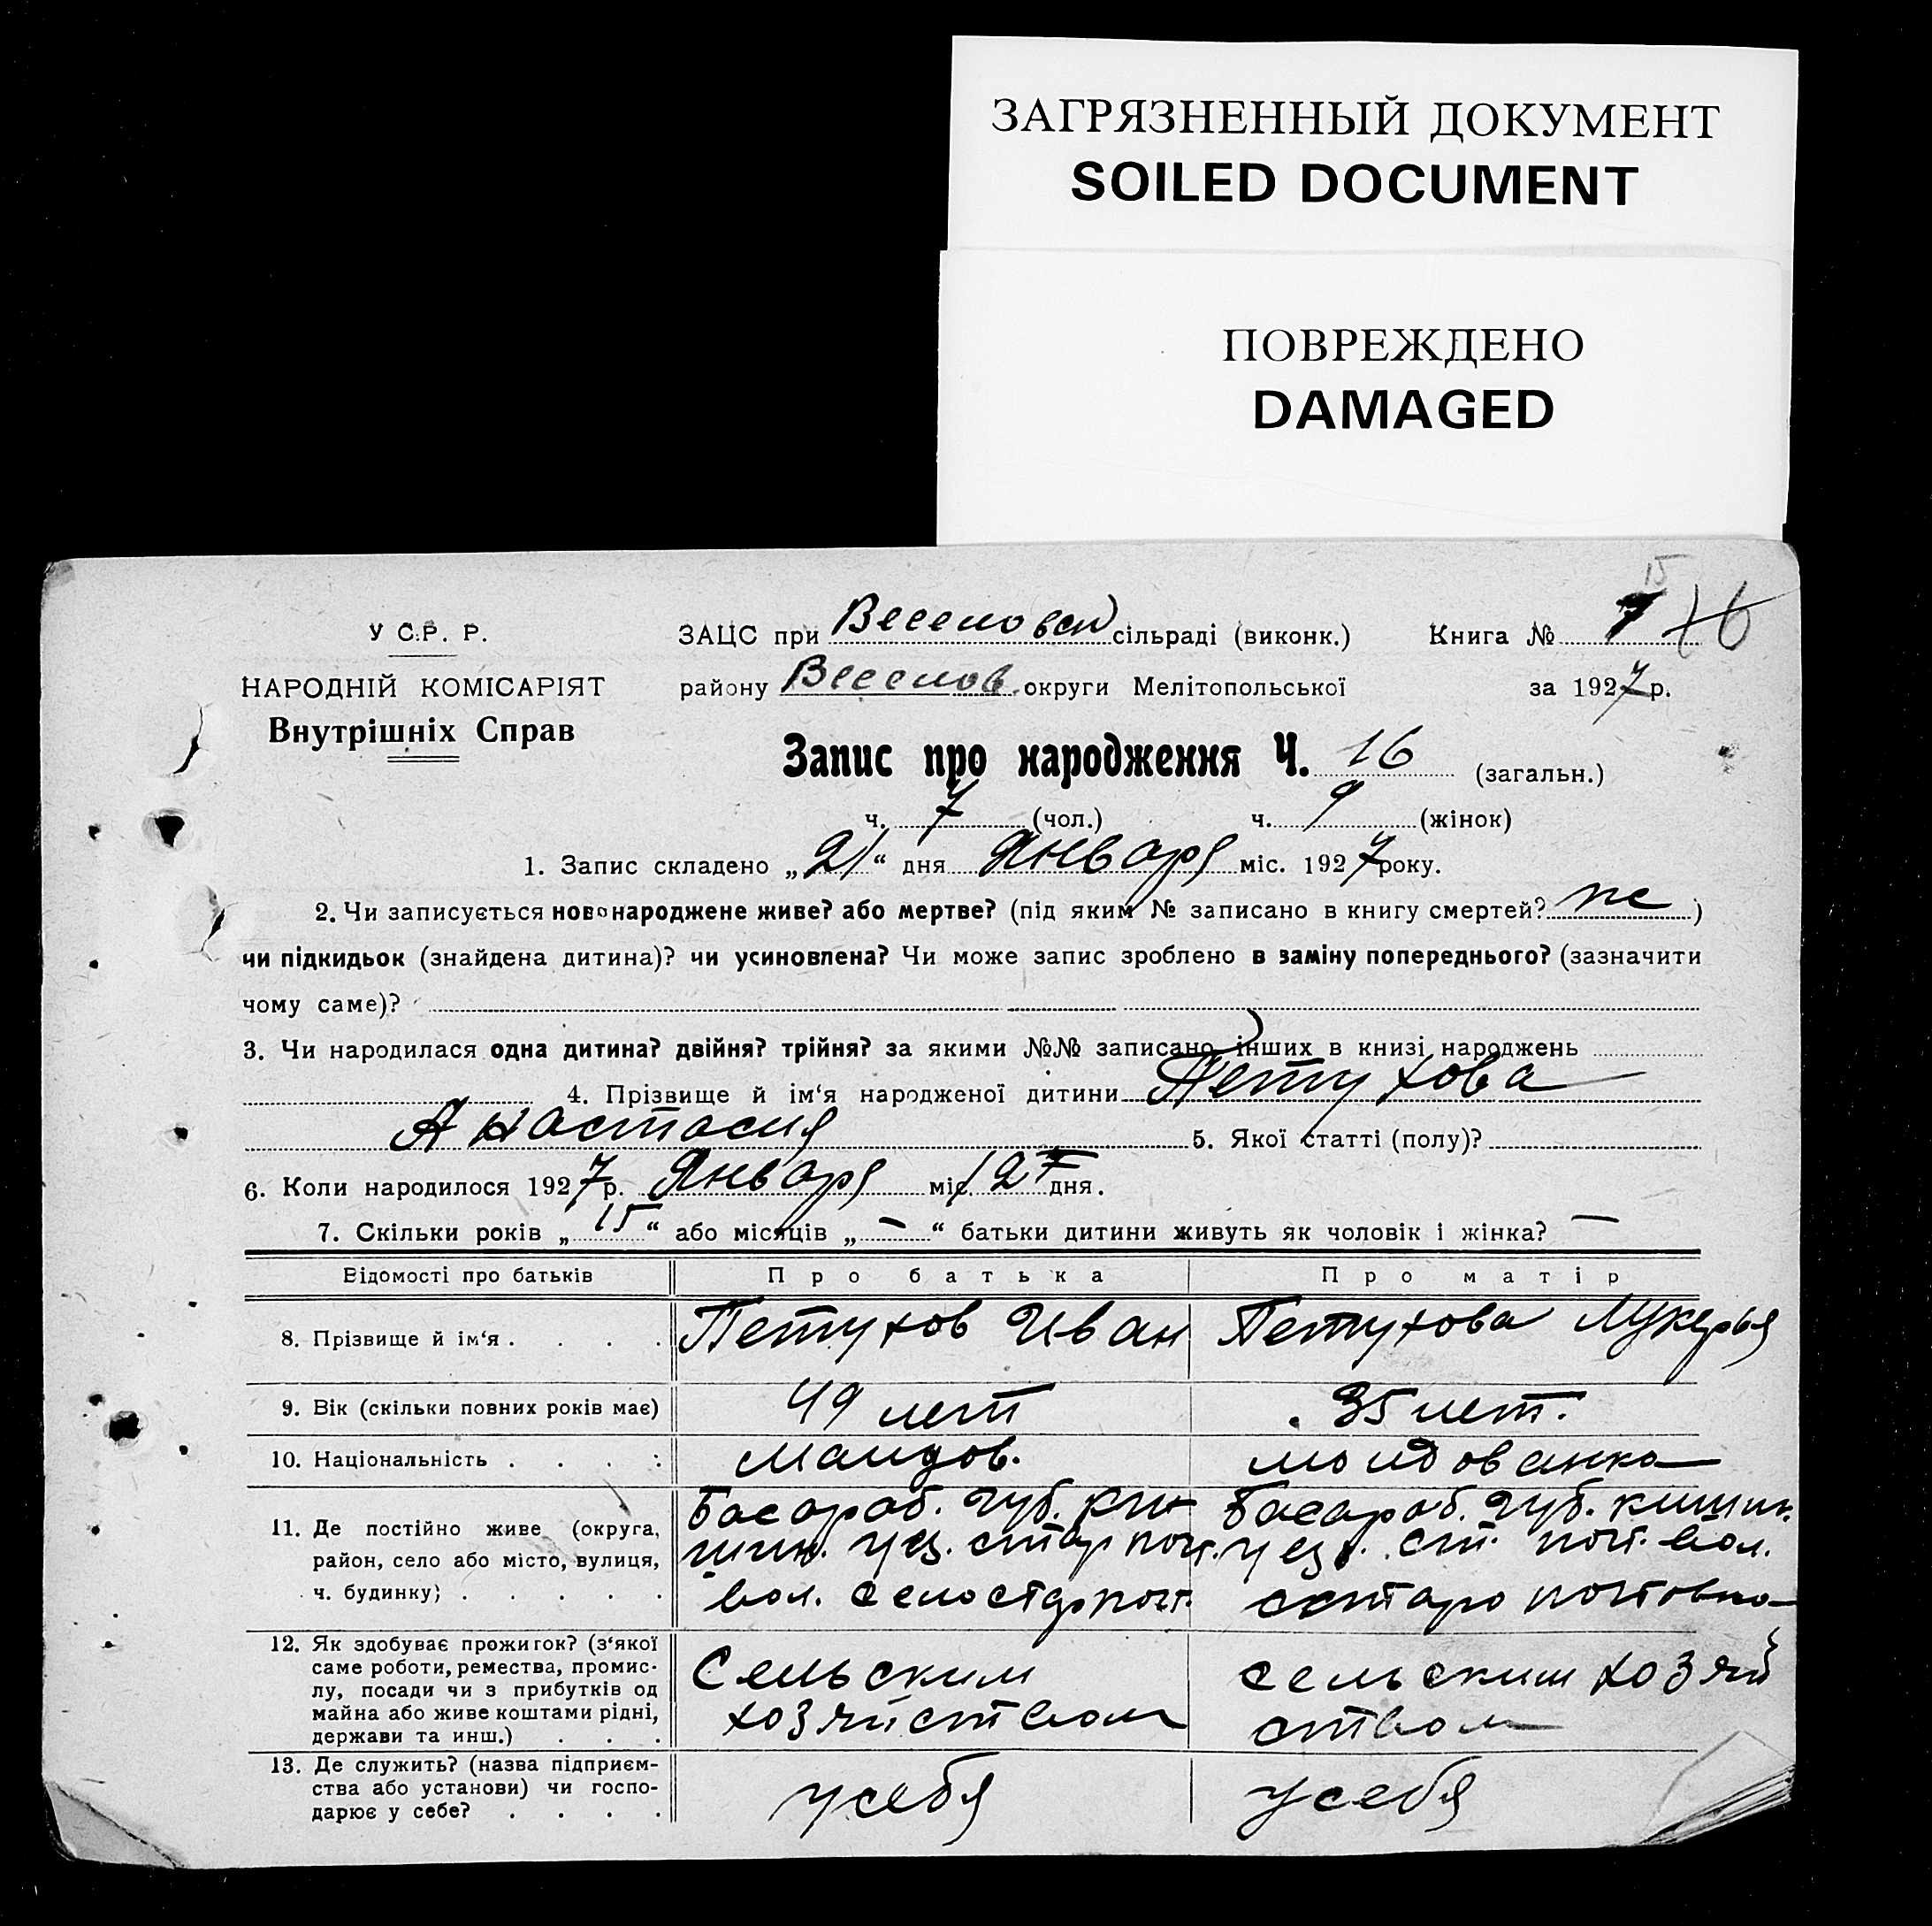 ЗАГРЯЗНЕННЫЙ ДОКУМЕНТ
SOILED DOCUMENT
ПОВРЕЖДЕНО
DAMAGED
15
У С.Р. Р.
ЗАЦС при Веселовск сільраді (виконк.) Книга № 1 16
НАРОДНІЙ КОМІСАРІЯТ
району Веселов. округи Мелітопольської за 1927 р.
Внутрішніх Справ
Запис про народження Ч. 16 (загальн.)
ч. 7 (чол.) ч. 9 (жінок)
1. Запис складено „21“ дня Января міс. 1927 року.
2. Чи записується новонароджене живе? або мертве? (під яким № записано в книгу смертей? не )
чи підкидьок (знайдена дитина)? чи усиновлена? Чи може запис зроблено в заміну попереднього? (зазначити
чому саме)?
3. Чи народилася одна дитина? двійня? трійня? за якими №№ записано інших в книзі народжень
4. Прізвище й ім‘я народженої дитини Петухова
Анастасия 5. Якої статті (полу)?
6. Коли народилося 1927 р. Января міс. 12 дня.
7. Скільки років „ 15 “ або місяців „ — “ батьки дитини живуть як чоловік і жінка? —
Відомості про батьків Про батька Про матір
8. Прізвище й ім‘я . . . . Петухов Иван Петухова Лукерья
9. Вік (скільки повних років має) 49 лет 35 лет.
10. Національність . . . : Малдов. молдованка
11. Де постійно живе (округа, Басараб. губ. Ки- Басараб. губ. кишин.
район, село або місто, вулиця, шин. уез. стар пош. уез. ст. пош. вол.
ч. будинку) . . . . . вол. село
12. Як здобуває прожиток? (з‘якої
саме роботи, ремества, промис-
лу, посади чи з прибутків од
майна або живе коштами рідні,
держави та инш.) . . .
Сельским
хозяйством
сельским хозяй
ством
13. Де служить? (назва підприєм-
ства або установи) чи госпо-
дарює у себе? . . . .
усебя усебя